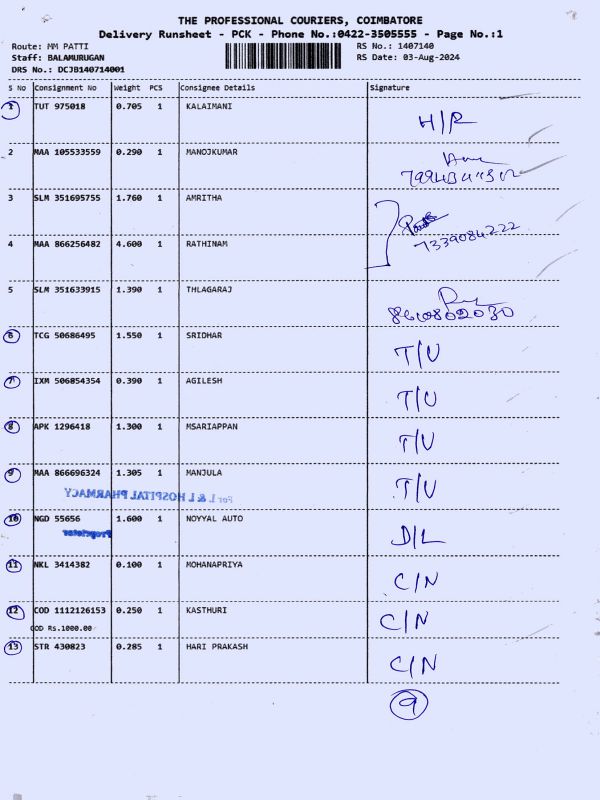 THE PROFESSIONAL COURIERS, COIMBATORE
Delivery Runsheet - PCK - Phone No.:0422-3505555 - Page No.:1
Route: MM PATTI RS No.: 1407140
Staff: BALAMURUGAN RS Date: 03-Aug-2024
DRS No.: DCJB140714001
S No Consignment No Weight PCS Consignee Details Signature
1 TUT 975018 0.705 1 KALAIMANI H/R
2 MAA 105533559 0.290 1 MANOJKUMAR
3 SLM 351695755 1.760 1 AMRITHA
7339084222
4 MAA 866256482 4.600 1 RATHINAM
5 SLM 351633915 1.390 1 THLAGARAJ
8610802030
6 TCG 50686495 1.550 1 SRIDHAR T/U
7 IXM 506854354 0.390 1 AGILESH T/U
8 APK 1296418 1.300 1 MSARIAPPAN T/U
9 MAA 866696324 1.305 1 MANJULA T/U
For L & L HOSPITAL PHARMACY
10 NGD 55656 1.600 1 NOYYAL AUTO D/L
Proprietor
11 NKL 3414382 0.100 1 MOHANAPRIYA C/N
12 COD 1112126153 0.250 1 KASTHURI C/N
COD Rs.1000.00
13 STR 430823 0.285 1 HARI PRAKASH C/N
9